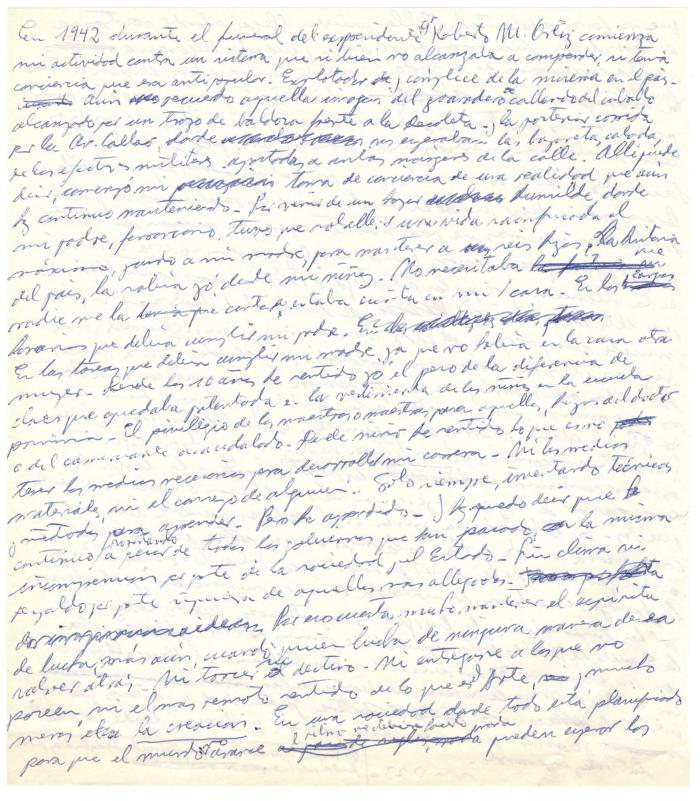 En 1942 durante el funeral del expresidente Dr Roberto M. Ortiz comienza
mi actividad contra un sistema que si bien no alcanzaba a comprender, si tenía
conciencia que era antipopular. Explotador y cómplice de la miseria en el país-
aún recuerdo aquella imagen del granadero callendo del caballo
alcanzado por un trozo de baldosa frente a la Recoleta- y la posterior corrida
por la Av. Callao, donde nos esperaban las bayonetas caladas
de los efectivos militares apostados a ambas margenes de la calle. Allí puede
decir, comenzó mi toma de conciencia de una realidad que aun
hoy continuo manteniendo- Por venir de un hogar humilde, donde
mi padre, ferroviario, tuvo que sobrellevar una vida sacrificada al
máximo, junto a mi madre, para mantener a seis hijos, la historia
del país, la sabía yo desde mi niñez. No necesitaba que
nadie me la contase, estaba escrita en mi casa. En los cargos
horarios que debía cumplir mi padre.
En las tareas que debía cumplir mi madre, ya que no había en la casa otra
mujer- Desde los 10 años he sentido yo el peso de la diferencia de
clases que quedaba patentada en la vestimenta de los niños en la escuela
primaria- El privilegio de los maestros o maestras para aquellos, hijos del doctor
o del comerciante acaudalado. Desde niño he sentido lo que es no
tener los medios necesarios para desarrollar mi carrera- Ni los medios
materiales, ni el consejo de alguien- Solo siempre, inventando técnicas
y métodos, para aprender. Pero he aprendido- y hoy puedo decir que
continuo a pesar de todos los gobiernos que han pasado, la misma
incomprensión por parte de la sociedad y el Estado- Sin clima ni
respaldo por parte siquiera de aquellos mas allegados-
Por eso cuesta mucho mantener el espíritu
de lucha, más aún, cuando quien lucha de ninguna manera desea
volver atrás- Ni torcer su destino- Ni entregarse a los que no
poseen ni el mas remoto sentido de lo que es Arte, y mucho
menos la creacion. En una sociedad donde todo está planificado
para que el mundo avance nada pueden esperar los